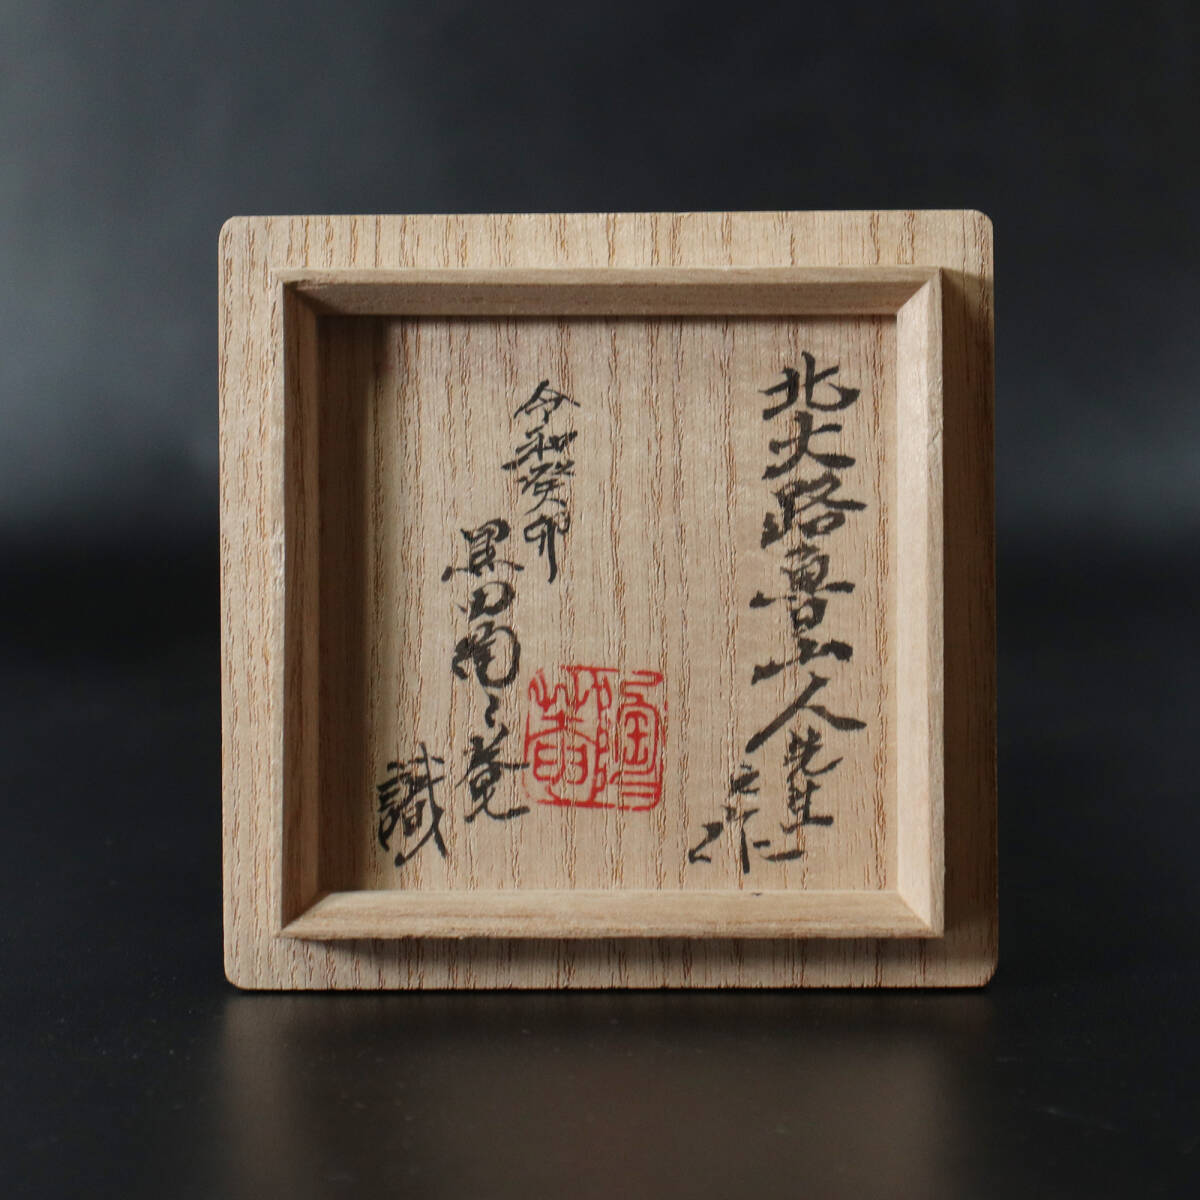 北大路魯山人先生
之作
令和癸卯
黒田陶々菴
識
陶々菴